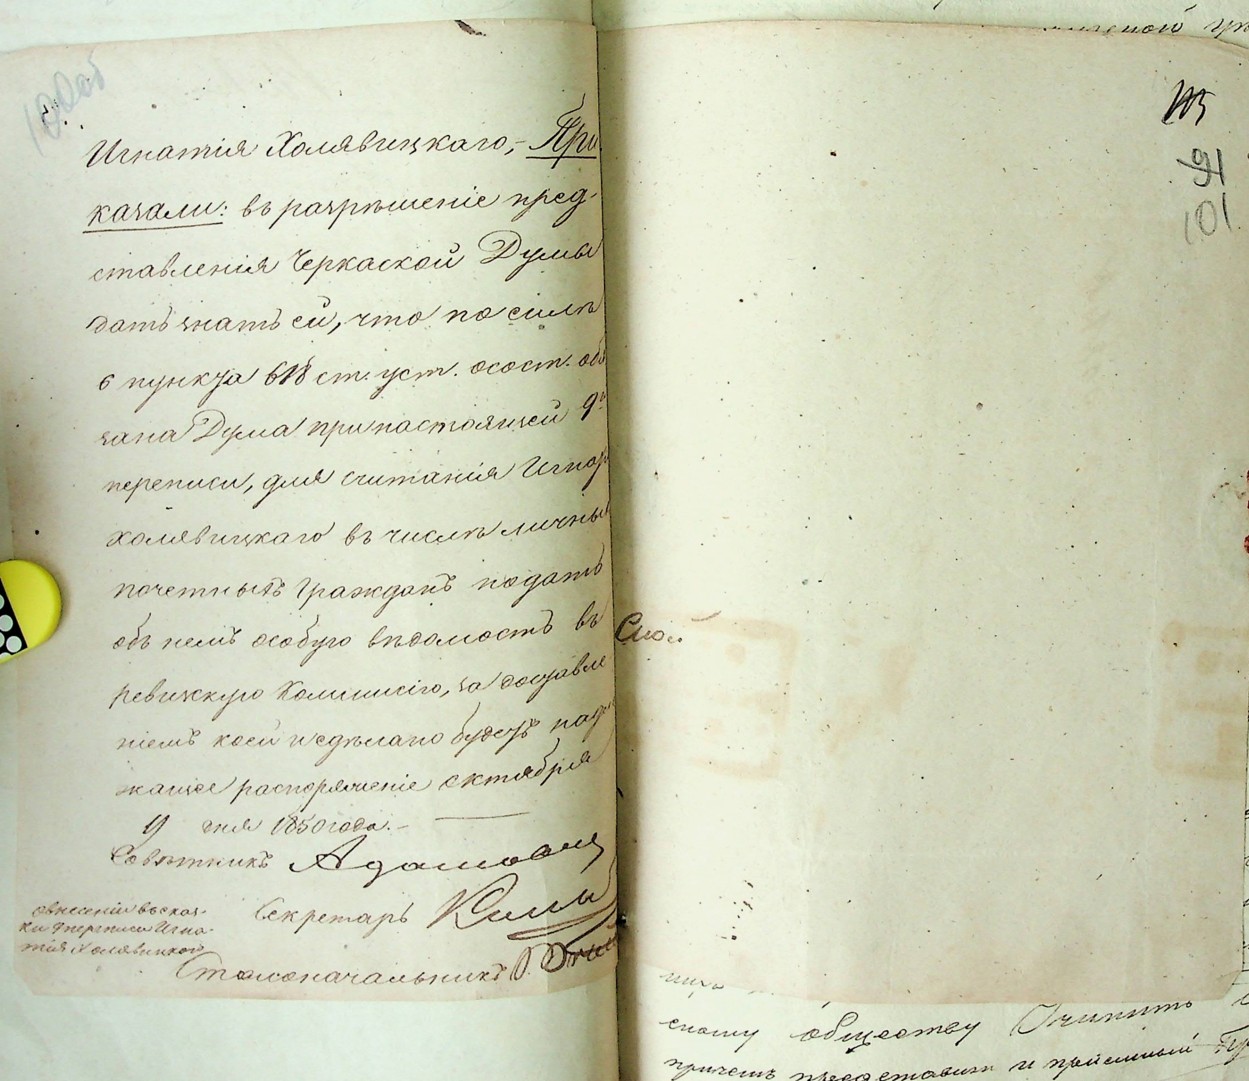 100об
Игнатія Холявицкаго,- При
казали: въ разрѣшеніе пред-
ставленія Черкаской Думы
дать знать ей, что по силѣ
6 пункта ст. уст. о сост. обя
зана Дума при настоящей 9й
переписи, для считанія Игнат
Холявицкаго въ числѣ личных
почетныхъ Гражданъ подать
объ немъ особую вѣдомость въ
ревизскую Коммисію, за доставле
ніемъ коей и сдѣлано будетъ надл
жащее распоряженіе октября
9 дня 1850 года.-
Совѣтникъ Адамович
Секретарь
Столоначальникъ
о внесеніи въ сказ-
ки 9 переписи Игна-
тія Холявицкого
91
101
скому обществу Очипить
причемъ представить и пріемный